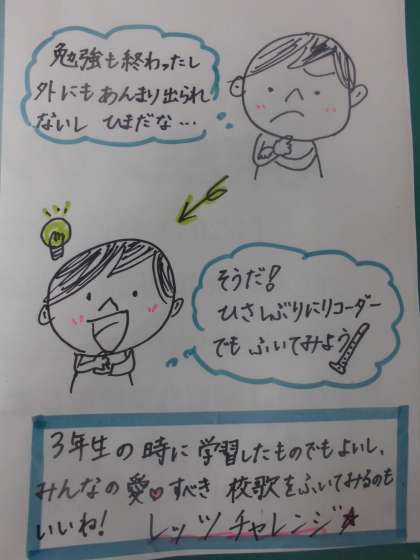 勉強も終わったし
外にもあんまり出られ
ないし ひまだな…
そうだ!
ひさしぶりにリコーダー
でも ふいてみよう
3年生の時に学習したものでもよいし、
みんなの愛♥すべき 校歌をふいてみるのも
いいね! レッツ チャレンジ★